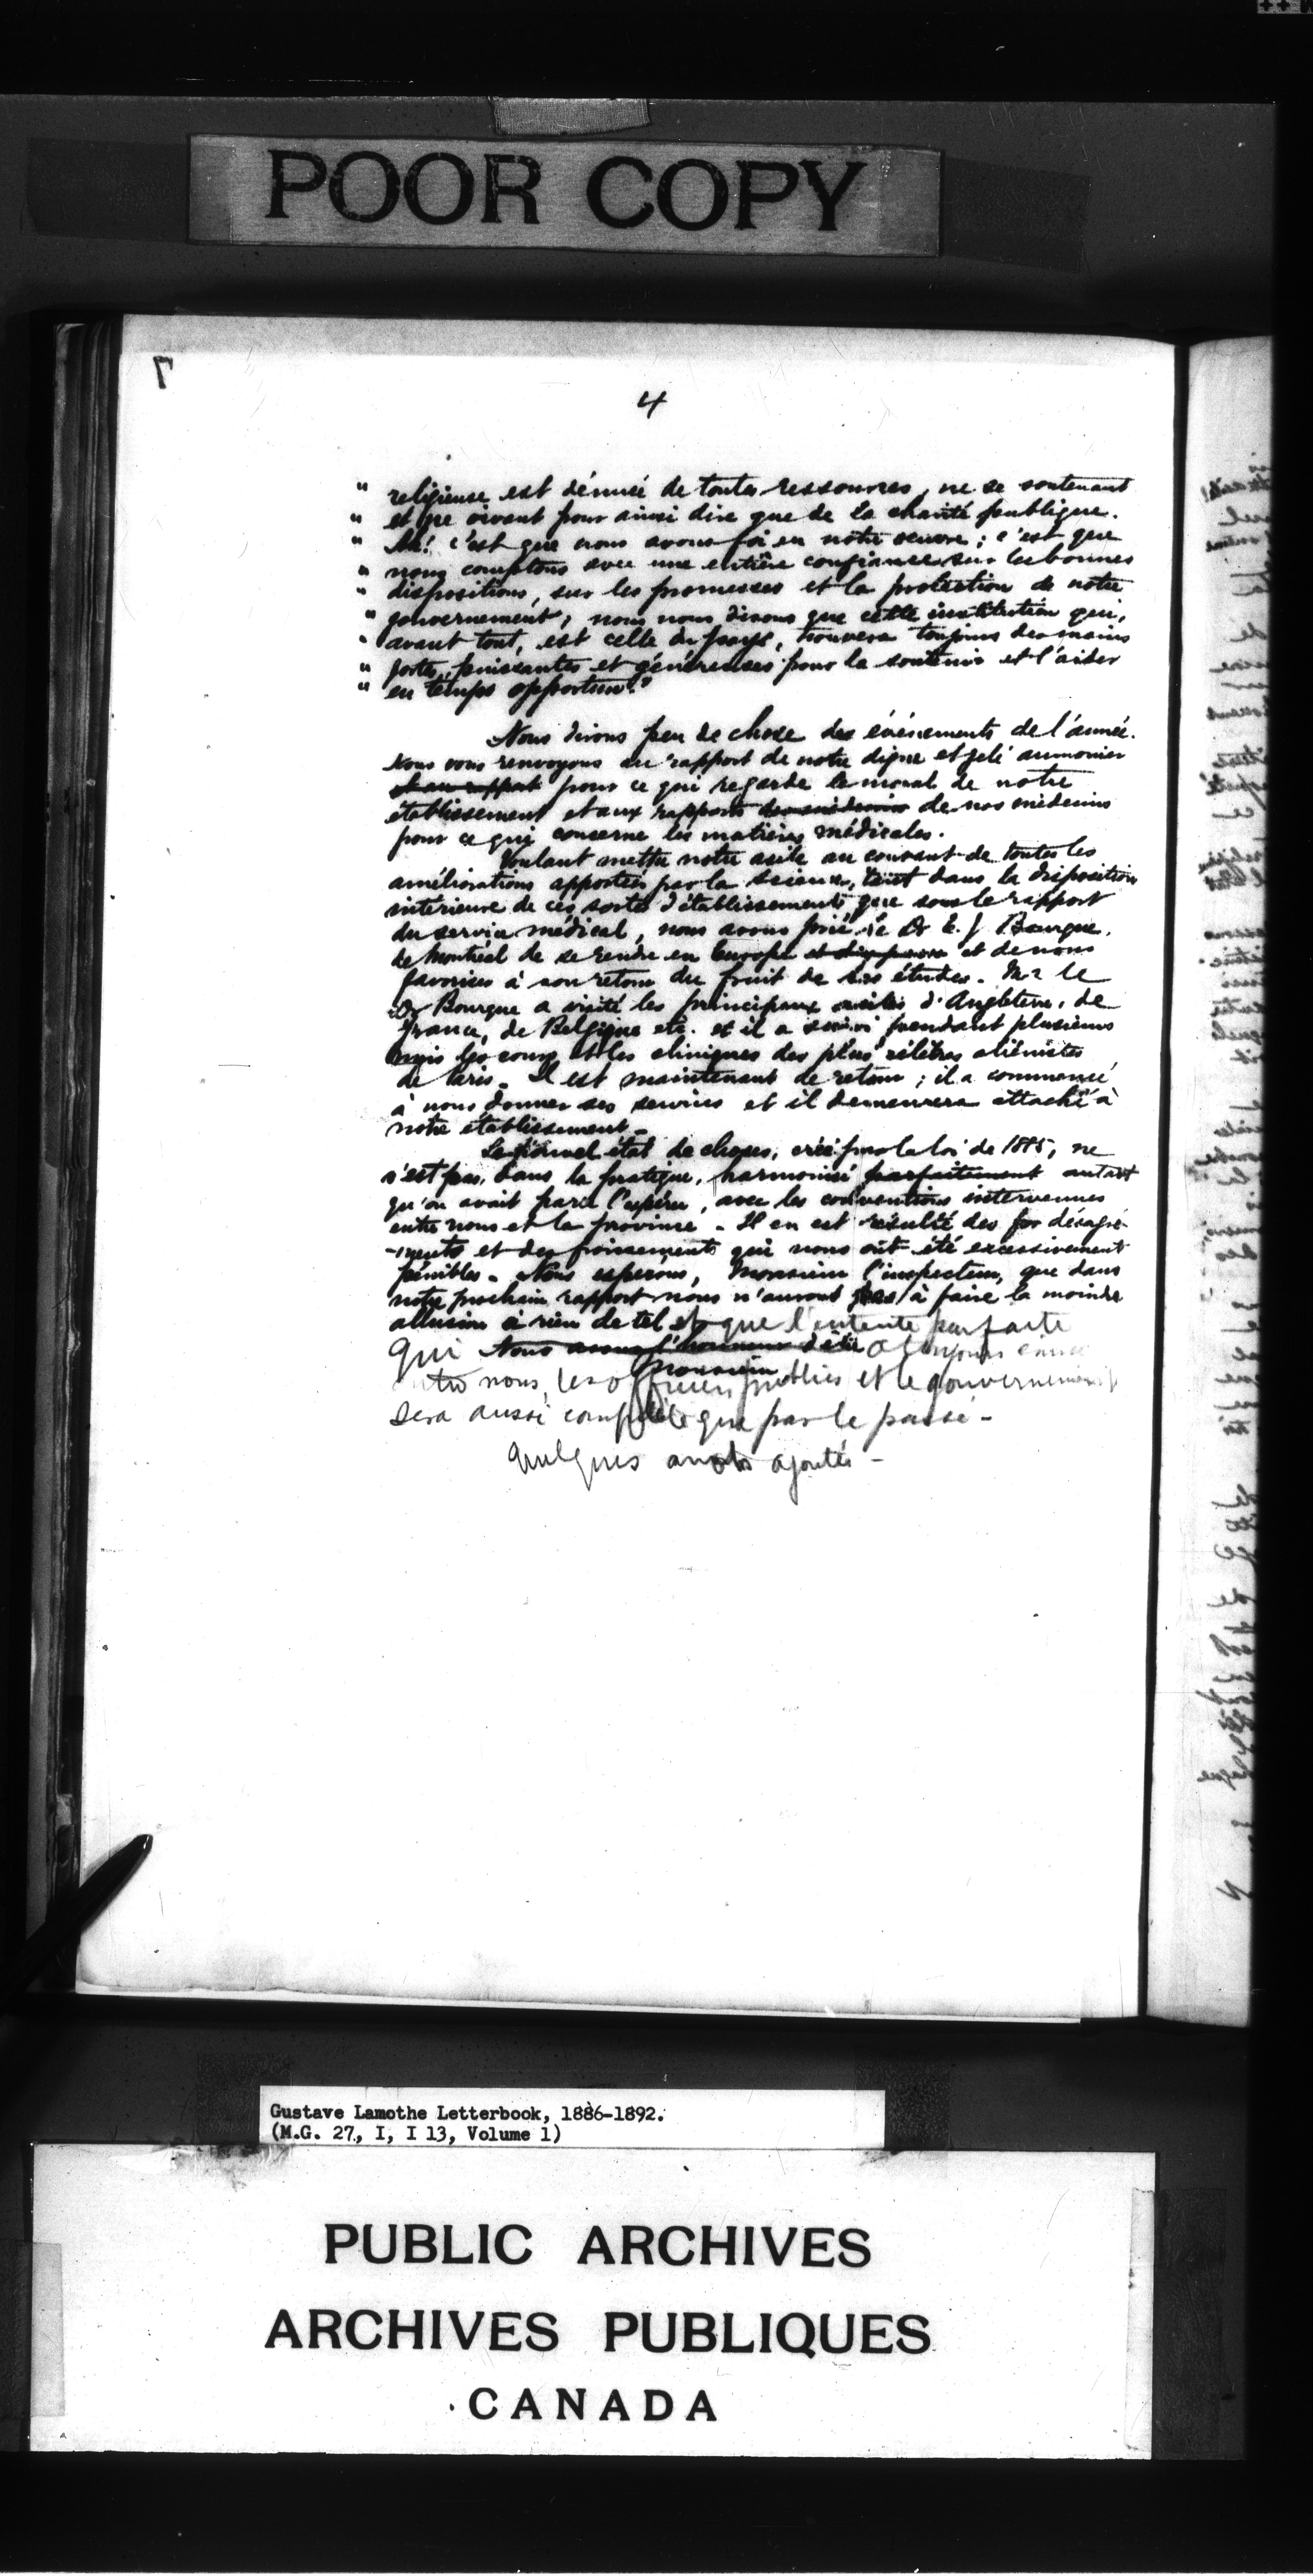 POOR COPY
7
4
" religieuse est dénuée de toutes ressources, ne se soutenant
" et ne vivant pour ainsi dire que de la charité publique.
" Ah! c'est que nous avons foi en notre oeuvre; c'est que
" nous comptons avec une entière confiance sur les bonnes
" dispositions, sur les promesses et la protection de notre
" gouvernement; nous nous disons que cette institution qui,
" avant tout, est celle du pays, trouvera toujours des mains
" fortes, puissantes et généreuses pour la soutenir et l'aider
" en temps opportun."
Nous dirons peu de chose des événements de l'année.
Nous vous renvoyons au rapport de notre digne et zélé aumonier
et au rapport pour ce qui regarde le moral de notre
établissement et aux rapports des médecins de nos médecins
pour ce qui concerne les matières médicales.
Voulant mettre notre asile au courant de toutes les
améliorations apportées par la science, tant dans la disposition
intérieure de ces sortes d'établissements que sous le rapport
du service médical, nous avons prié le Dr E. J. Bourque.
de Montréal de se rendre en Europe et de nous
favoriser à son retour du fruit de ses études. Mr le
Dr Bourque a visité les principaux asiles d'Angleterre, de
France, de Belgique etc. et il a suivi pendant plusieurs
mois les cours et les cliniques des plus célèbres aliénistes
de Paris. Il est maintenant de retour; il a commencé
à nous donner ses services et il demeurera attaché à
notre établissement.
Le nouvel état de choses, créé par la loi de 1885, ne
s'est pas, dans la pratique, harmonisé parfaitement autant
qu'on avait paru l'espérer, avec les conventions intervenues
entre nous et la province. Il en est résulté des désagré-
-ments et des froissements qui nous ont été excessivement
pénibles. Nous espérons, Monsieur l'inspecteur, que dans
notre prochain rapport nous n'aurons pas à faire la moindre
allusion à rien de tel et que l'entente parfaite
qui Nous avons l'honneur d'être a toujours
Monsieur
entre nous, les officiers publics et le gouvernement
sera aussi complète que par le passé -
Quelques mots ajoutés -
Gustave Lamothe Letterbook, 1886-1892.
(M.G. 27, I, I 13, Volume 1)
PUBLIC ARCHIVES
ARCHIVES PUBLIQUES
CANADA